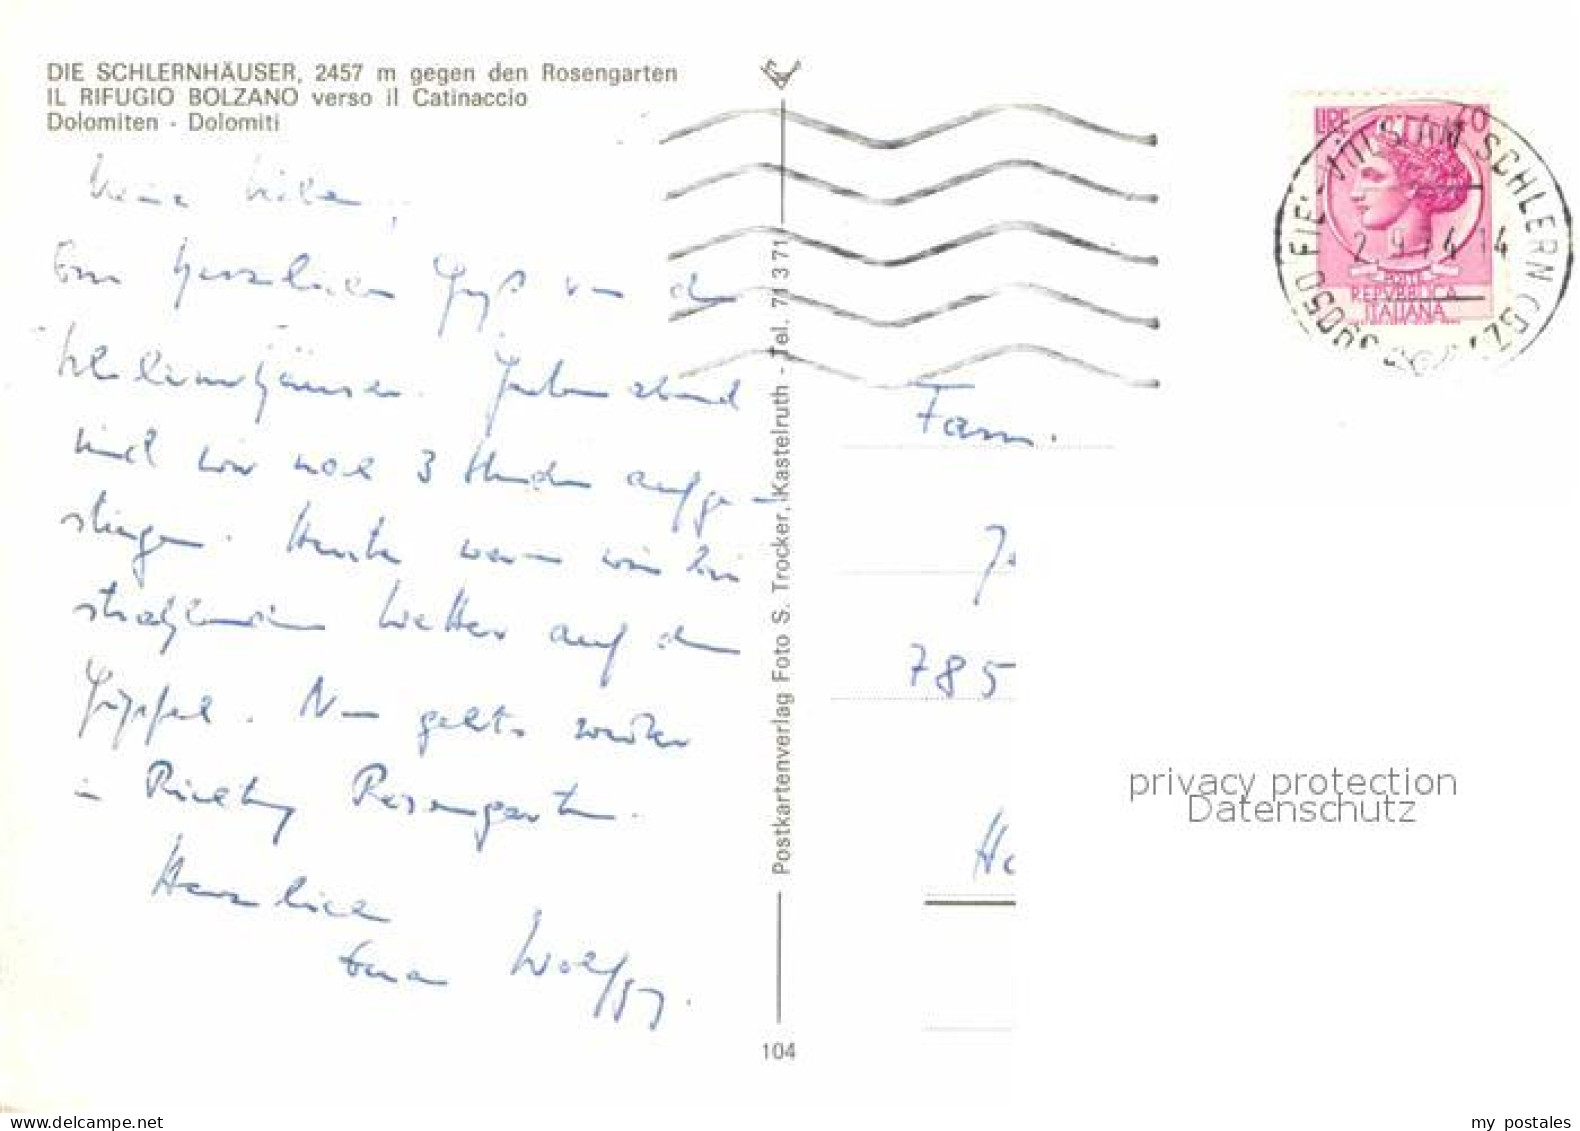 DIE SCHLERNHÄUSER, 2457 m gegen den Rosengarten
IL RIFUGIO BOLZANO verso il Catinaccio
Dolomiten - Dolomiti
Meine Lieben,
Ein herzlicher Gruß von den
Schlernhäusern. Gestern abend
sind wir noch 3 Stunden aufge-
stiegen. Heute waren wir bei
strahlendem Wetter auf dem
Gipfel. Nun geht's weiter
in Richtung Rosengarten.
Herzlich
Wolfgg.
Postkartenverlag Foto S. Trocker, Kastelruth - Tel. 71371
104
LIRE
POSTE
REPVBBLICA
ITALIANA
39050 FIE' - VÖLS AM SCHLERN (BZ)
2.9.74 14
Fam.
785
privacy protection
Datenschutz
my postales